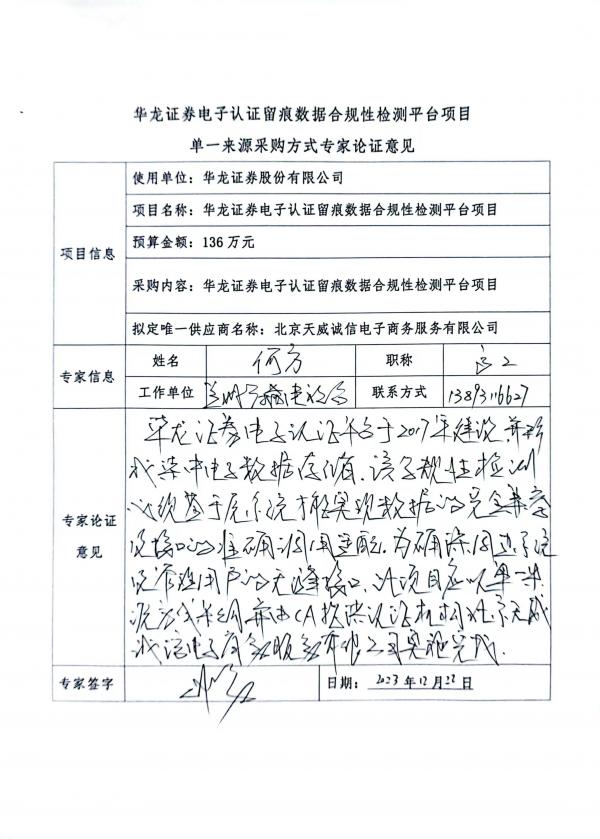 华龙证券电子认证留痕数据合规性检测平台项目
单一来源采购方式专家论证意见
项目信息
使用单位：华龙证券股份有限公司
项目名称：华龙证券电子认证留痕数据合规性检测平台项目
预算金额：136 万元
采购内容：华龙证券电子认证留痕数据合规性检测平台项目
拟定唯一供应商名称：北京天威诚信电子商务服务有限公司
专家信息
姓名 何方 职称 高工
工作单位 联系方式 13893116627
专家论证
意见
华龙证券电子认证平台于2017年建设,并形
成集中电子数据存储,该合规性检测
必须基于原系统才能实现数据的完全兼容
及接口的准确调用适配,为确保周边系统
及管理用户的无缝接口,此项目应以单一来
源方式采购,并由CA电子认证机构北京天威
诚信电子商务服务有限公司实施完成.
专家签字
日期：2023年12月22日